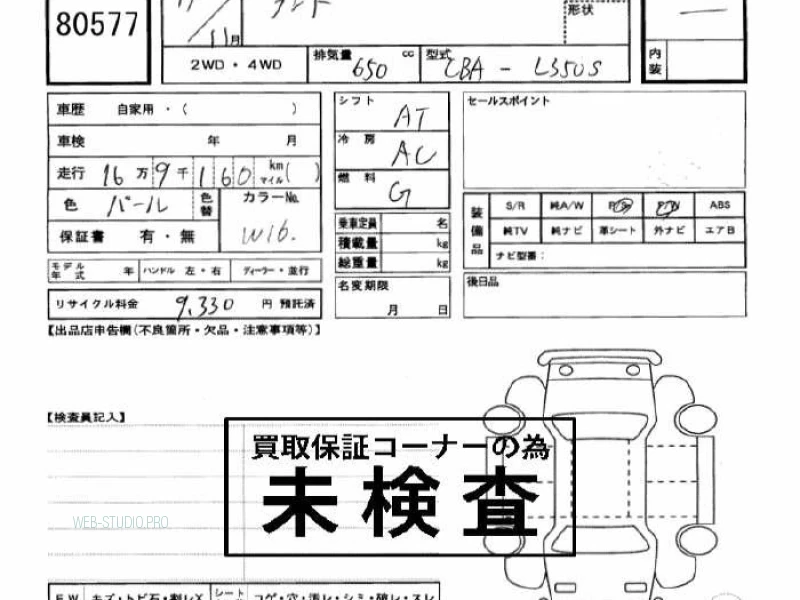 80577
月
形状
2WD・4WD
排気量 650 cc
型式 CBA - L350S
内装
車歴 自家用・( )
車検 年 月
走行 16万9千160 km マイル( )
色 パール 色替
カラーNo. W16.
保証書 有・無
シフト AT
冷房 AC
燃料 G
セールスポイント
乗車定員 名
積載量 kg
総重量 kg
装備品 S/R 純A/W P/S P/W ABS
純TV 純ナビ 革シート 外ナビ エアB
ナビ型番:
モデル年式 年 ハンドル 左・右 ディーラー・並行
名変期限 月 日
後日品
リサイクル料金 9,330 円 預託済
【出品店申告欄(不良箇所・欠品・注意事項等)】
【検査員記入】
買取保証コーナーの為
未検査
WEB-STUDIO.PRO
F.W キズ・トビ石・割レX シート コゲ・穴・汚レ・シミ・破レ・スレ